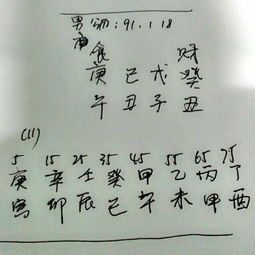 男 91.1.18
食 财
庚 己 戊 癸
午 丑 子 丑
(11)
5 15 25 35 45 55 65 75
庚 辛 壬 癸 甲 乙 丙 丁
寅 卯 辰 巳 午 未 申 酉